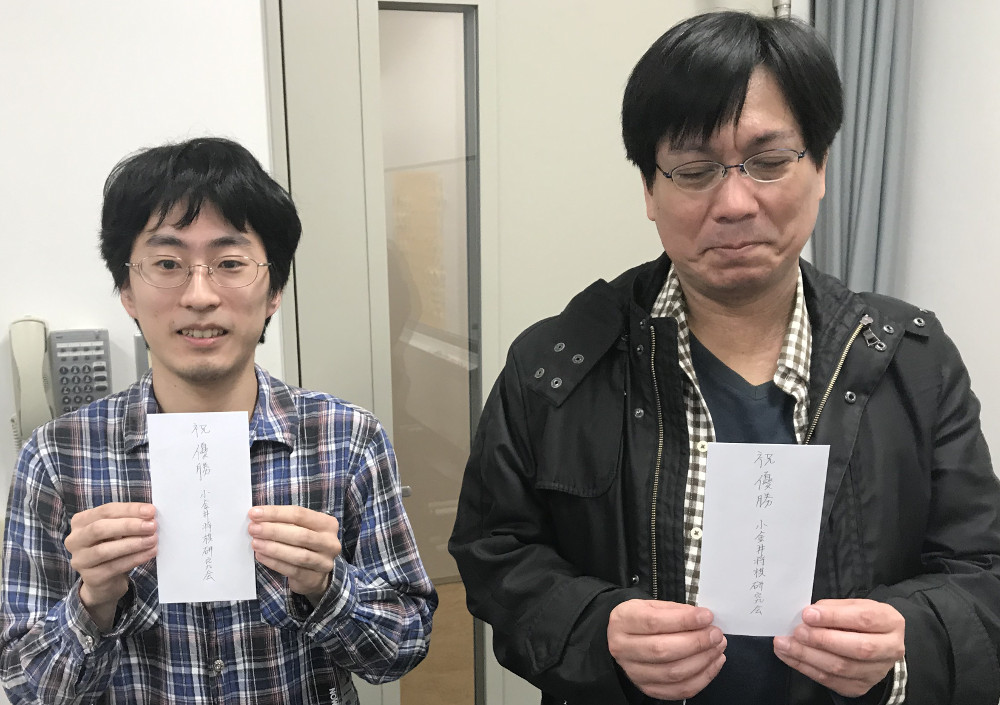 祝優勝
小金井将棋研究会
祝優勝
小金井将棋研究会